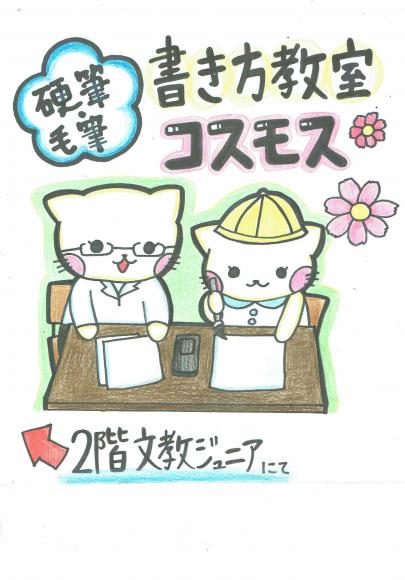 硬筆・
毛筆
書き方教室
コスモス
2階文教ジュニアにて